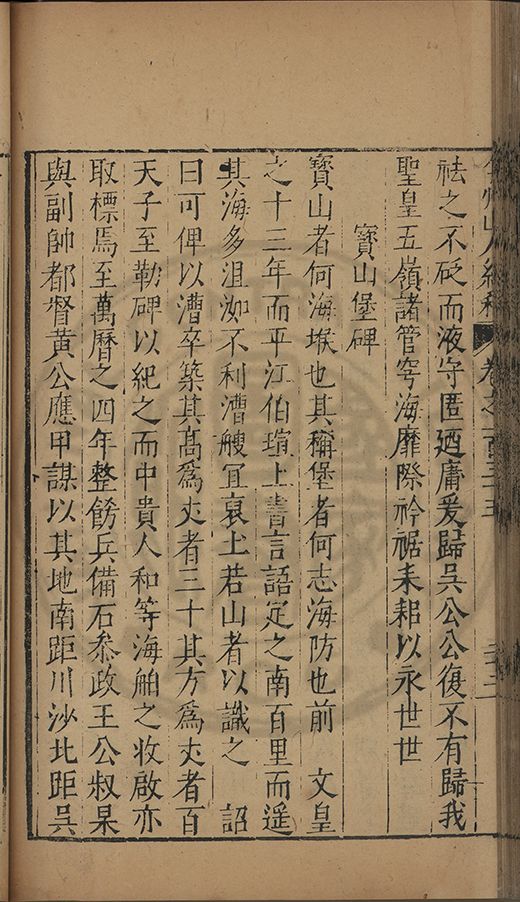 祛之不砭而液守匡廼庸爰歸吳公公復不有歸我
聖皇五嶺諸管穹海靡際衿裾耒耜以永世世
寳山堡碑
寳山者何海堠也其稱堡者何志海防也前 文皇
之十三年而平江伯瑄上書言語定之南百里而遥
其海多沮洳不利漕艘冝裒上若山者以識之 詔
曰可俾以漕卒築其髙爲丈者三十其方爲丈者百
天子至勒碑以紀之而中貴人和等海舶之收啟亦
取標焉至萬曆之四年整飭兵備石叅政王公叔杲
與副帥都督黄公應甲謀以其地南距川沙北距吳